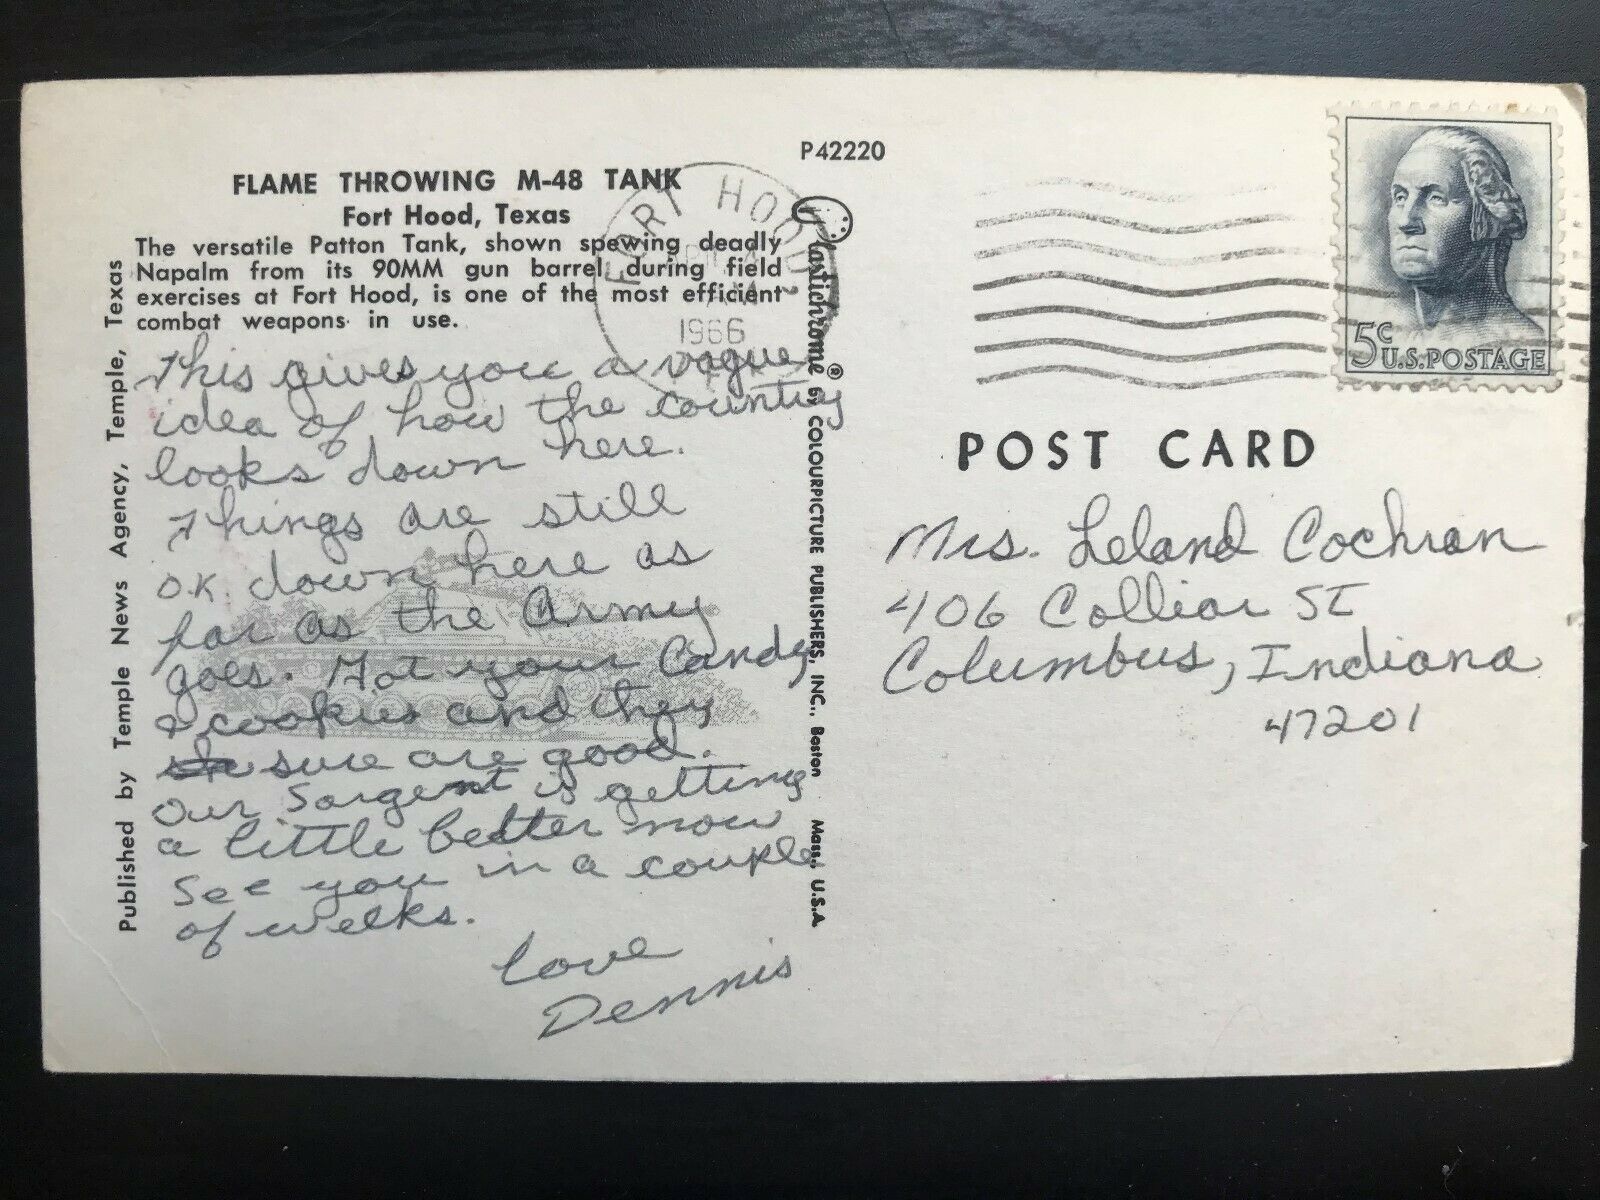 P42220
FLAME THROWING M-48 TANK
Fort Hood, Texas
The versatile Patton Tank, shown spewing deadly
Napalm from its 90MM gun barrel during field
exercises at Fort Hood, is one of the most efficient
combat weapons in use.
This gives you a vague
idea of how the country
looks down here.
Things are still
O.K. down here as
far as the Army
goes. Got your Candy
& cookies and they
sure are good.
Our Sargent is getting
a little better now
See you in a couple
of weeks.
Love
Dennis
Published by Temple News Agency, Temple, Texas
Plastichrome® by COLOURPICTURE PUBLISHERS, INC., Boston Mass., U.S.A
FORT HOOD
1966
5c U.S. POSTAGE
POST CARD
Mrs. Leland Cochran
406 Colliar St
Columbus, Indiana
47201